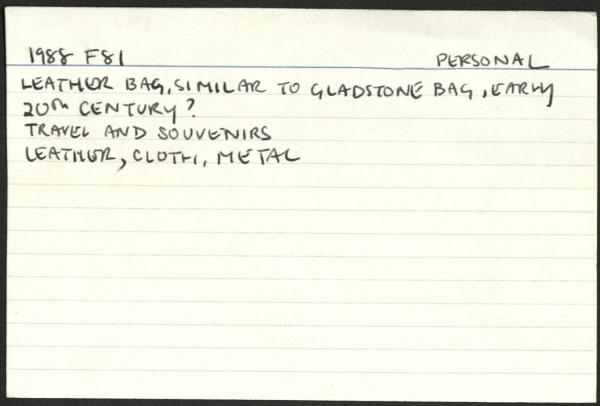 1988 F81 PERSONAL
LEATHER BAG, SIMILAR TO GLADSTONE BAG, EARLY
20TH CENTURY?
TRAVEL AND SOUVENIRS
LEATHER, CLOTH, METAL